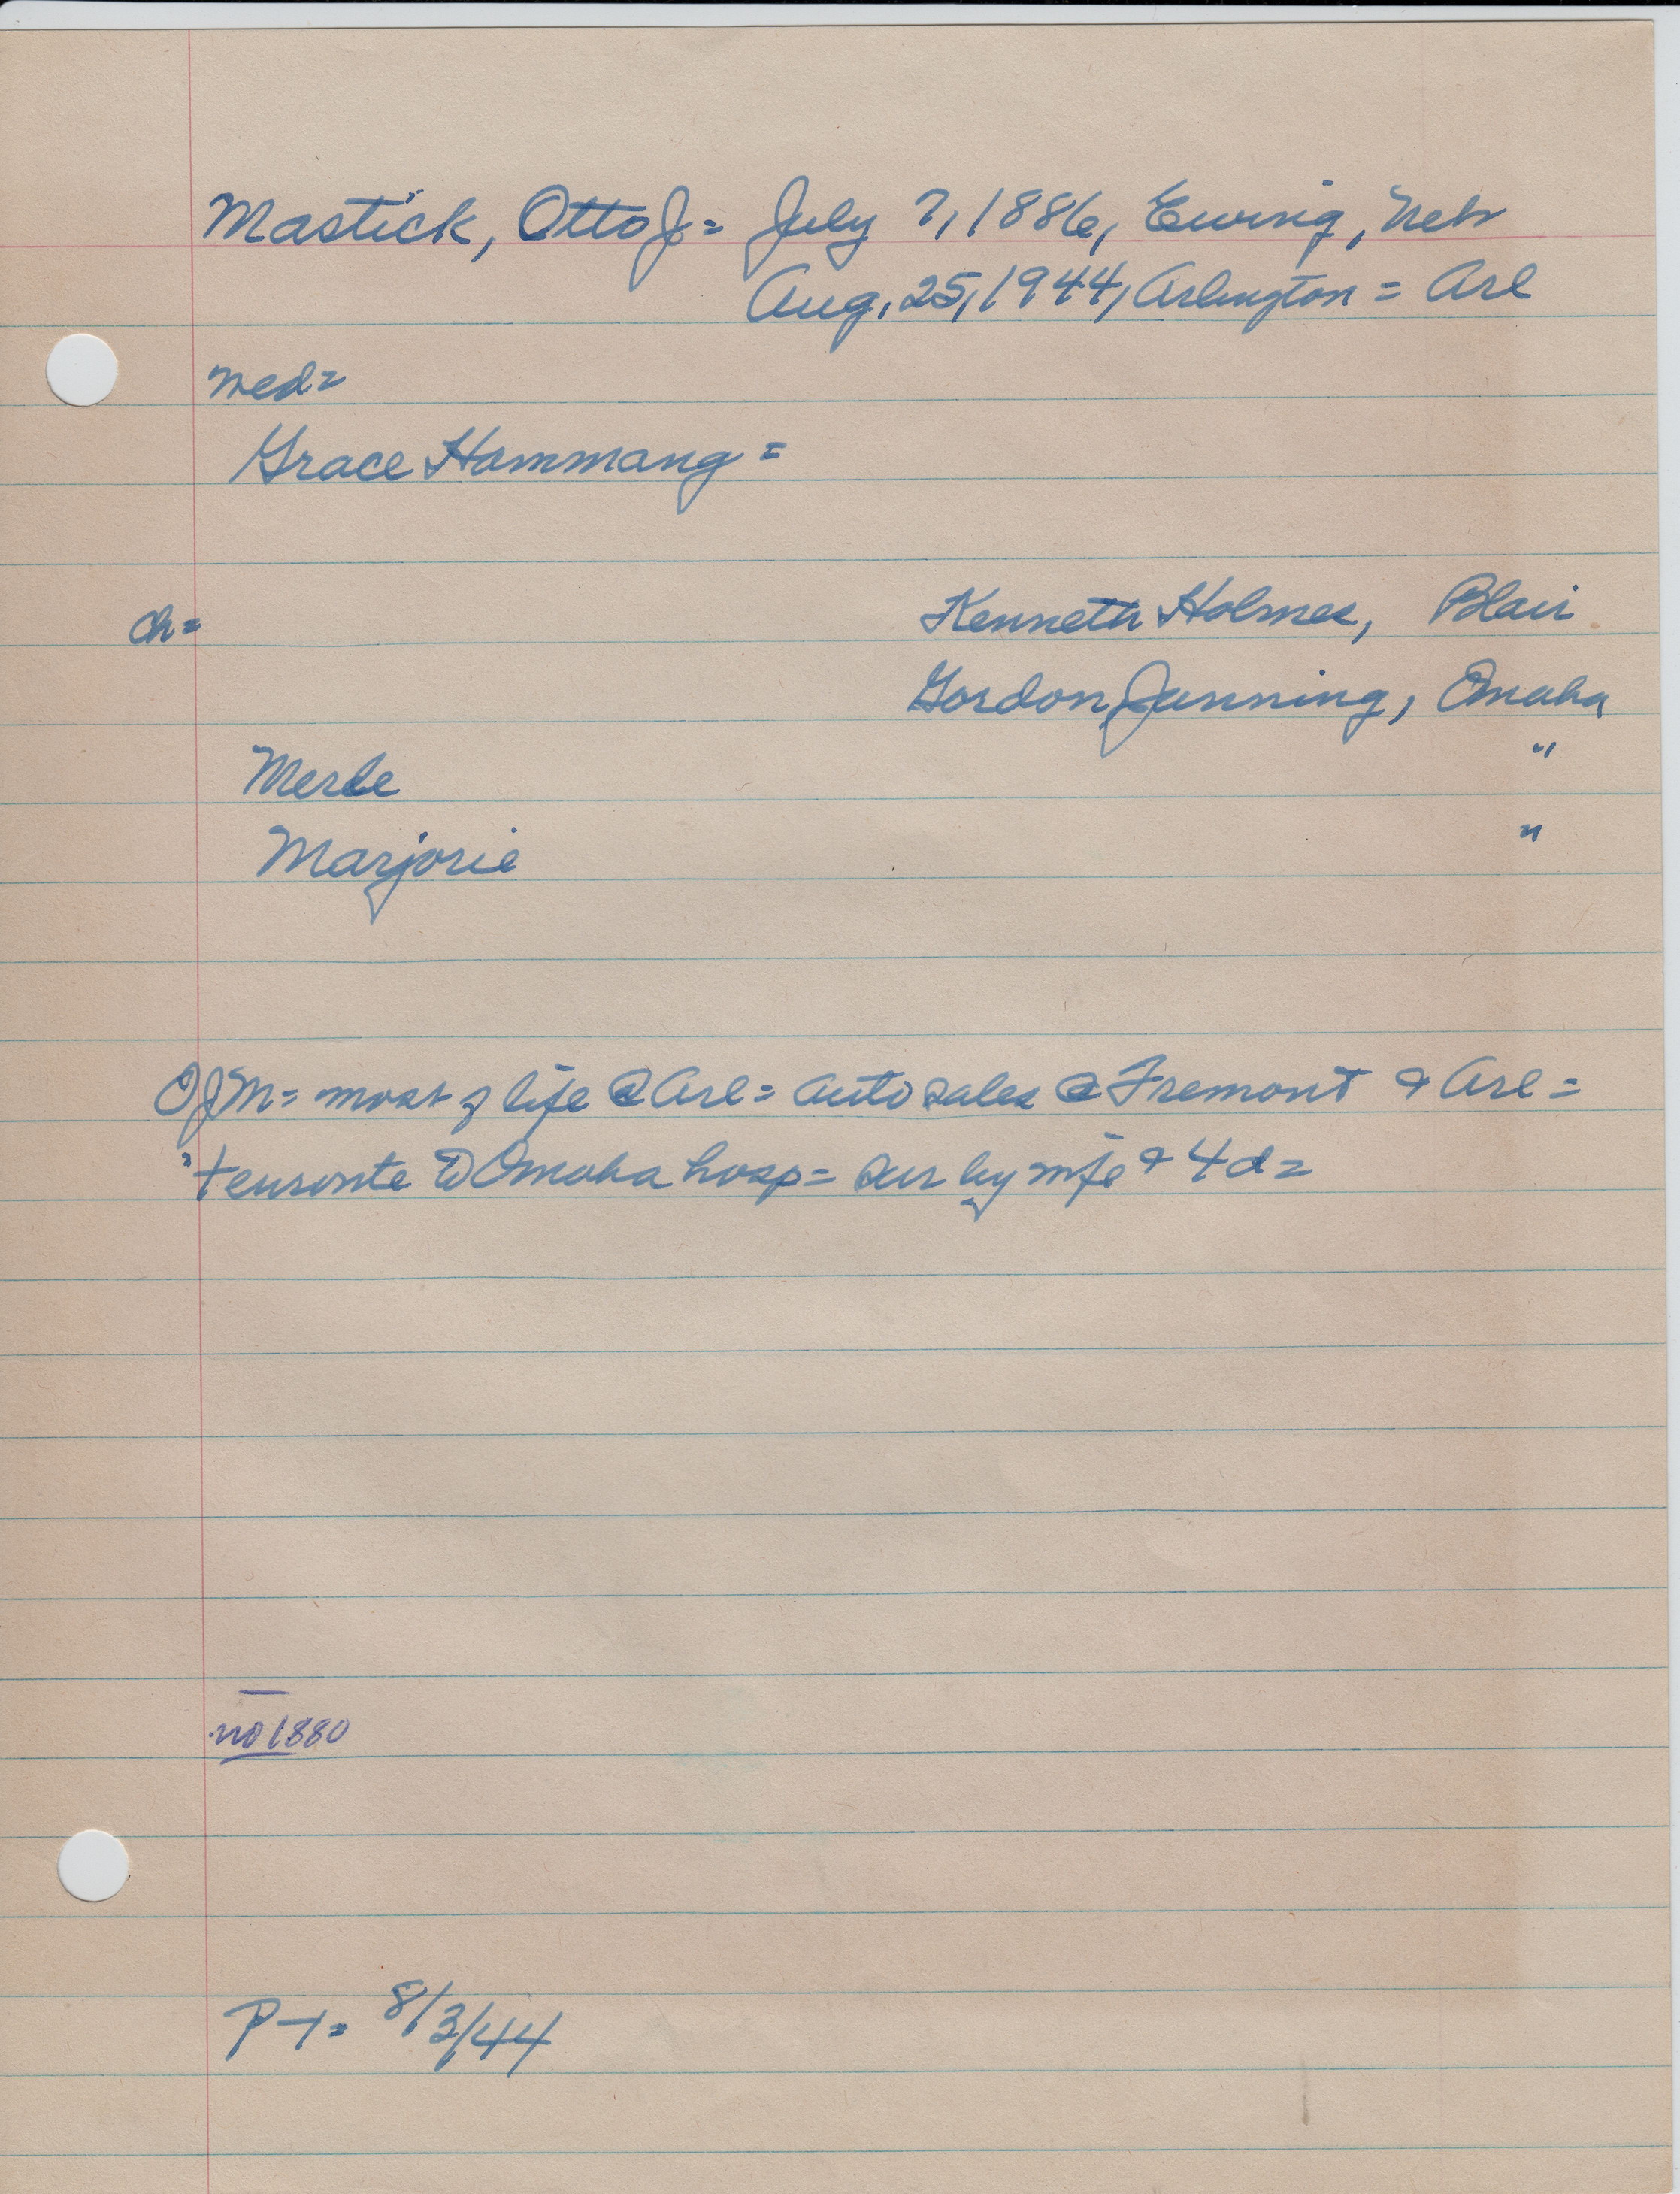 Mastick, Otto J = July 7, 1886, Ewing, Neb
Aug. 25, 1944, Arlington = Arl
med=
Grace Hammang =
ch= Kenneth Holmes, Blair
Gordon Janning, Omaha
Merle "
Marjorie "
OJM = most of life @ Arl = auto sales @ Fremont & Arl =
en route to Omaha hosp = sur by wife & 4 d =
no 1880
P-T = 8/3/44